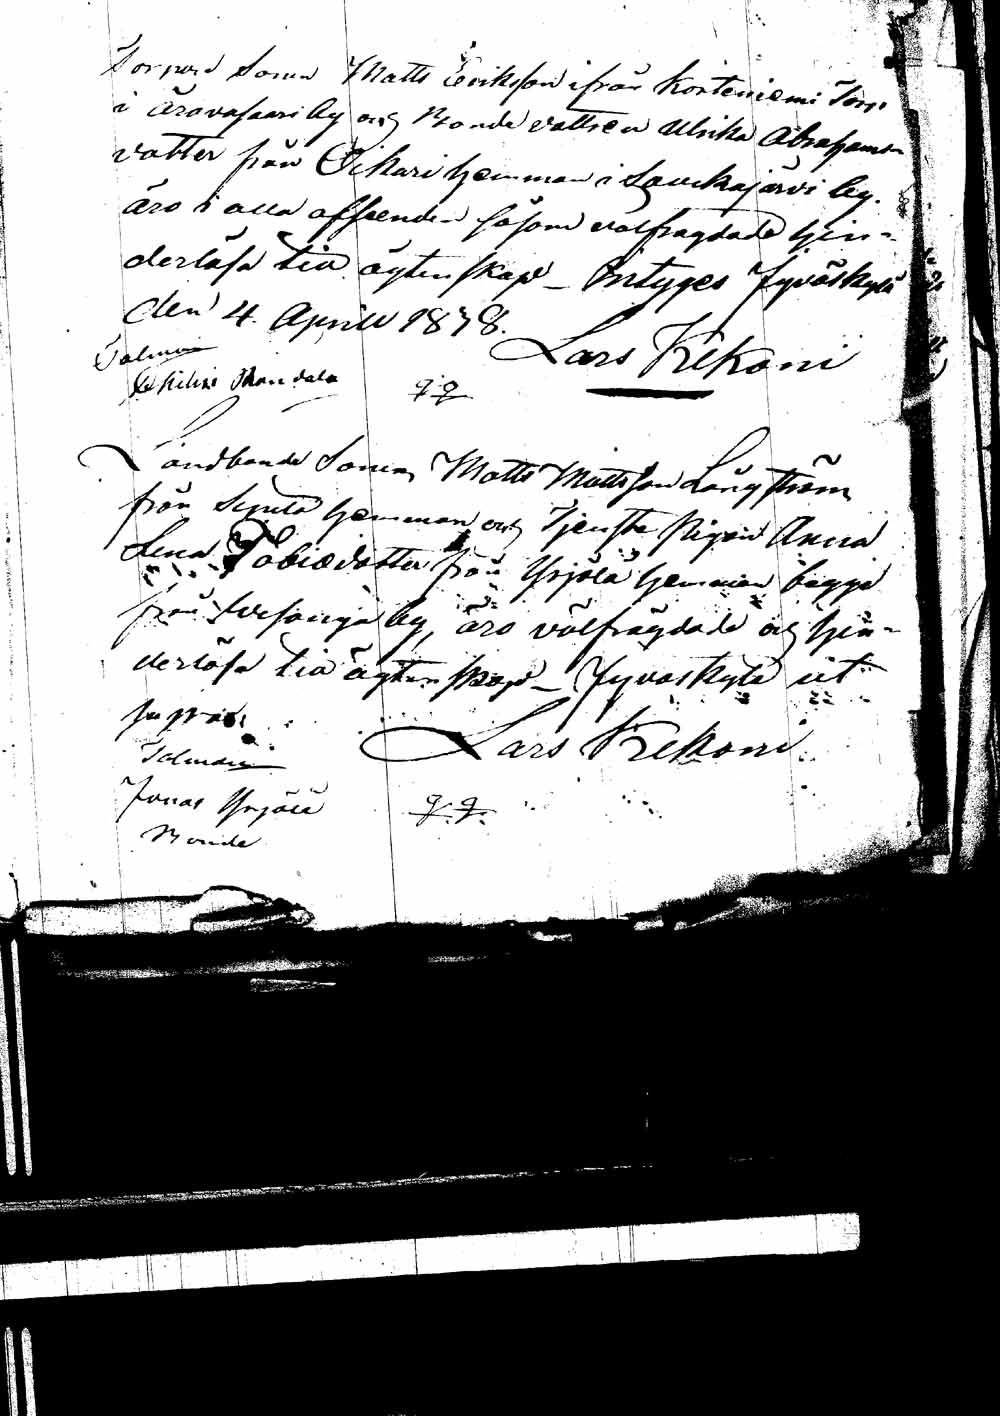 Torpare Sonen Matts Eriksson ifrån Korteniemi Torp
i Äravasaari by och Bonde dottren Ulrika Abrahams
dotter från Oikari hemman i Saukajärvi by.
äro i alla afseenden såsom välfrägdade hjin-
derlösa till ägtenskap – Intyges Jyväskylä
den 4 Aprill 1878.
Lars Kekoni
Talman
Mandala
q.q
Landbonde Sonen Matts Mattsson Långström
från Seppälä hemman och Tjenste Pigan Anna
Lena Tobiedotter från Yrjölä hemman begge
från Vesanga by, äro välfrägdade och hjin-
derlösa till ägtenskap – Jyväskylä ut
supra.
Lars Kekoni
Talman
Jonas Yrjölä
q.q.
Bonde